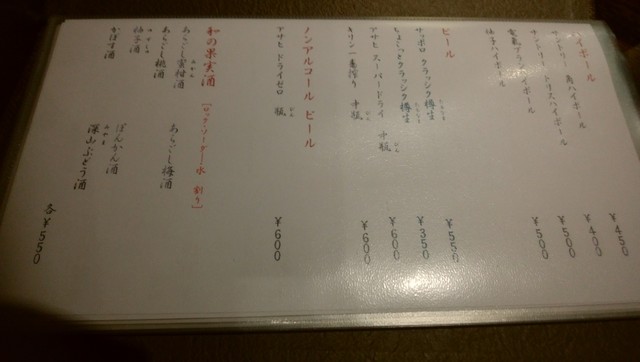 ハイボール
サントリー 角ハイボール ¥450
サントリー トリスハイボール ¥400
電気ブランハイボール ¥500
柚子ハイボール ¥500
ビール
サッポロ クラシック樽生 ¥550
ちょこっとクラシック樽生 ¥350
アサヒ スーパードライ 中瓶 ¥600
キリン一番搾り 中瓶 ¥600
ノンアルコール ビール
アサヒ ドライゼロ 瓶 ¥600
和の果実酒 [ロック・ソーダ・水 割り]
あらごし蜜柑酒 あらごし梅酒
あらごし桃酒
柚子酒 ぽんかん酒
かぼす酒 深山ぶどう酒
各¥550